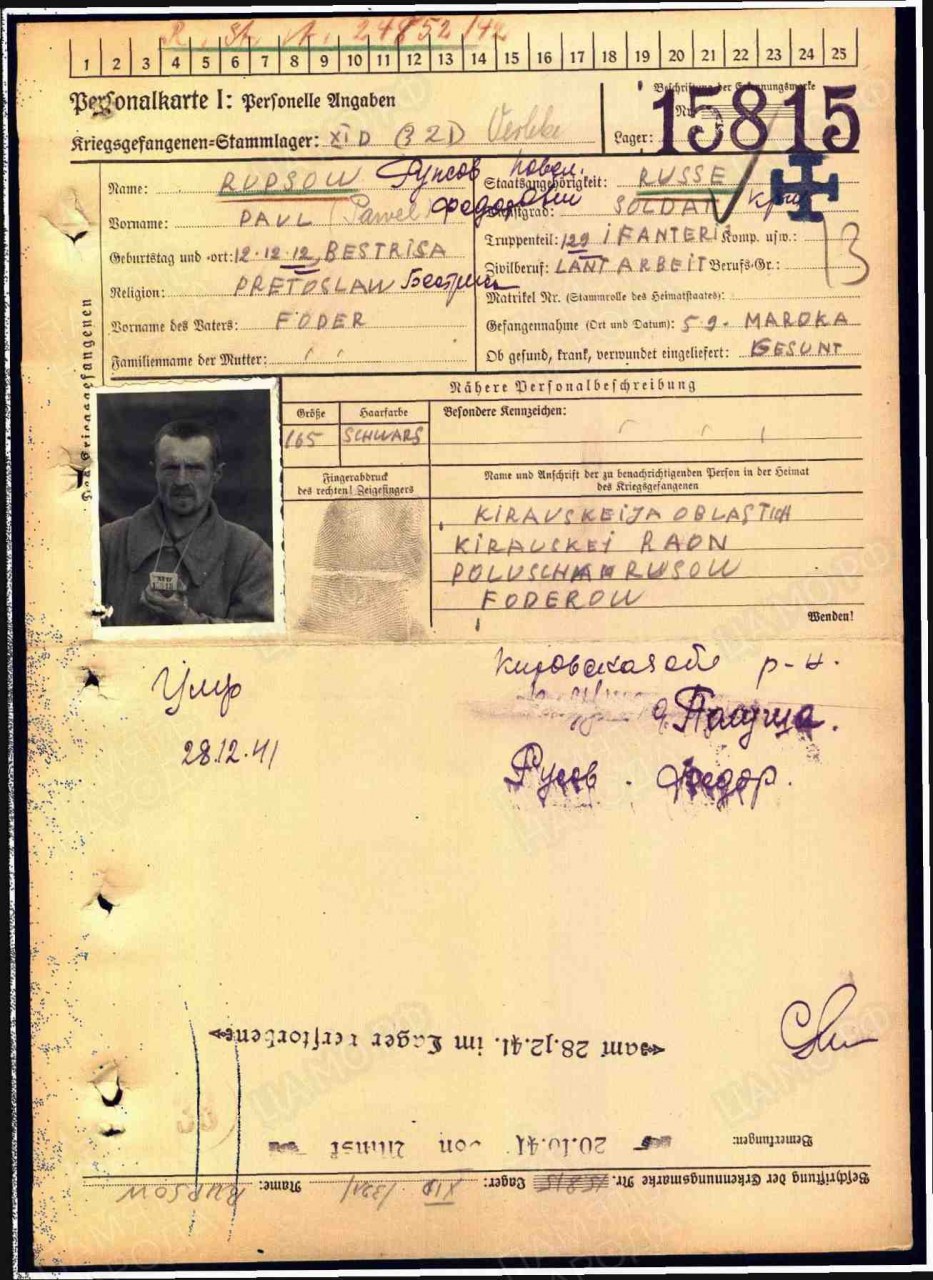 R. St. A. 24852/42
1 2 3 4 5 6 7 8 9 10 11 12 13 14 15 16 17 18 19 20 21 22 23 24 25
Personalkarte I: Personelle Angaben
Kriegsgefangenen=Stammlager: XI D (321)
Beschriftung der Erkennungsmarke
Nr. 15815
Lager:
Name: RUPSOW Рупсов Павел
Vorname: PAUL (Pawel) Федорович
Geburtstag und =ort: 12.12.12, BESTRISA
Religion: PRETOSLAW
Vorname des Vaters: FÖDER
Familienname der Mutter:
Staatsangehörigkeit: RUSSE
Dienstgrad: SOLDAT
Truppenteil: 129 IFANTERI Komp. usw.:
Zivilberuf: LANTARBEIT Berufs=Gr.: 13
Matrikel Nr. (Stammrolle des Heimatstaates):
Gefangennahme (Ort und Datum): 5 9. MAROKA
Ob gesund, krank, verwundet eingeliefert: GESUNT
Des Kriegsgefangenen
Nähere Personalbeschreibung
Größe Haarfarbe Besondere Kennzeichen:
165 SCHWARS
Fingerabdruck
des rechten! Zeigefingers
Name und Anschrift der zu benachrichtigenden Person in der Heimat
des Kriegsgefangenen
KIRAVSKEIJA OBLASTICH
KIRAVSKEI RAON
RUSOW
FODEROW
Wenden!
Умер
28.12.41
Кировская обл р-н.
д. Палуща.
Русов. Федор.
am 28.12.41. im Lager verstorben
Bemerkungen:
20.10.41 von
Beschriftung der Erkennungsmarke Nr. 15815 Lager: XID /321/ Name: RUPSOW